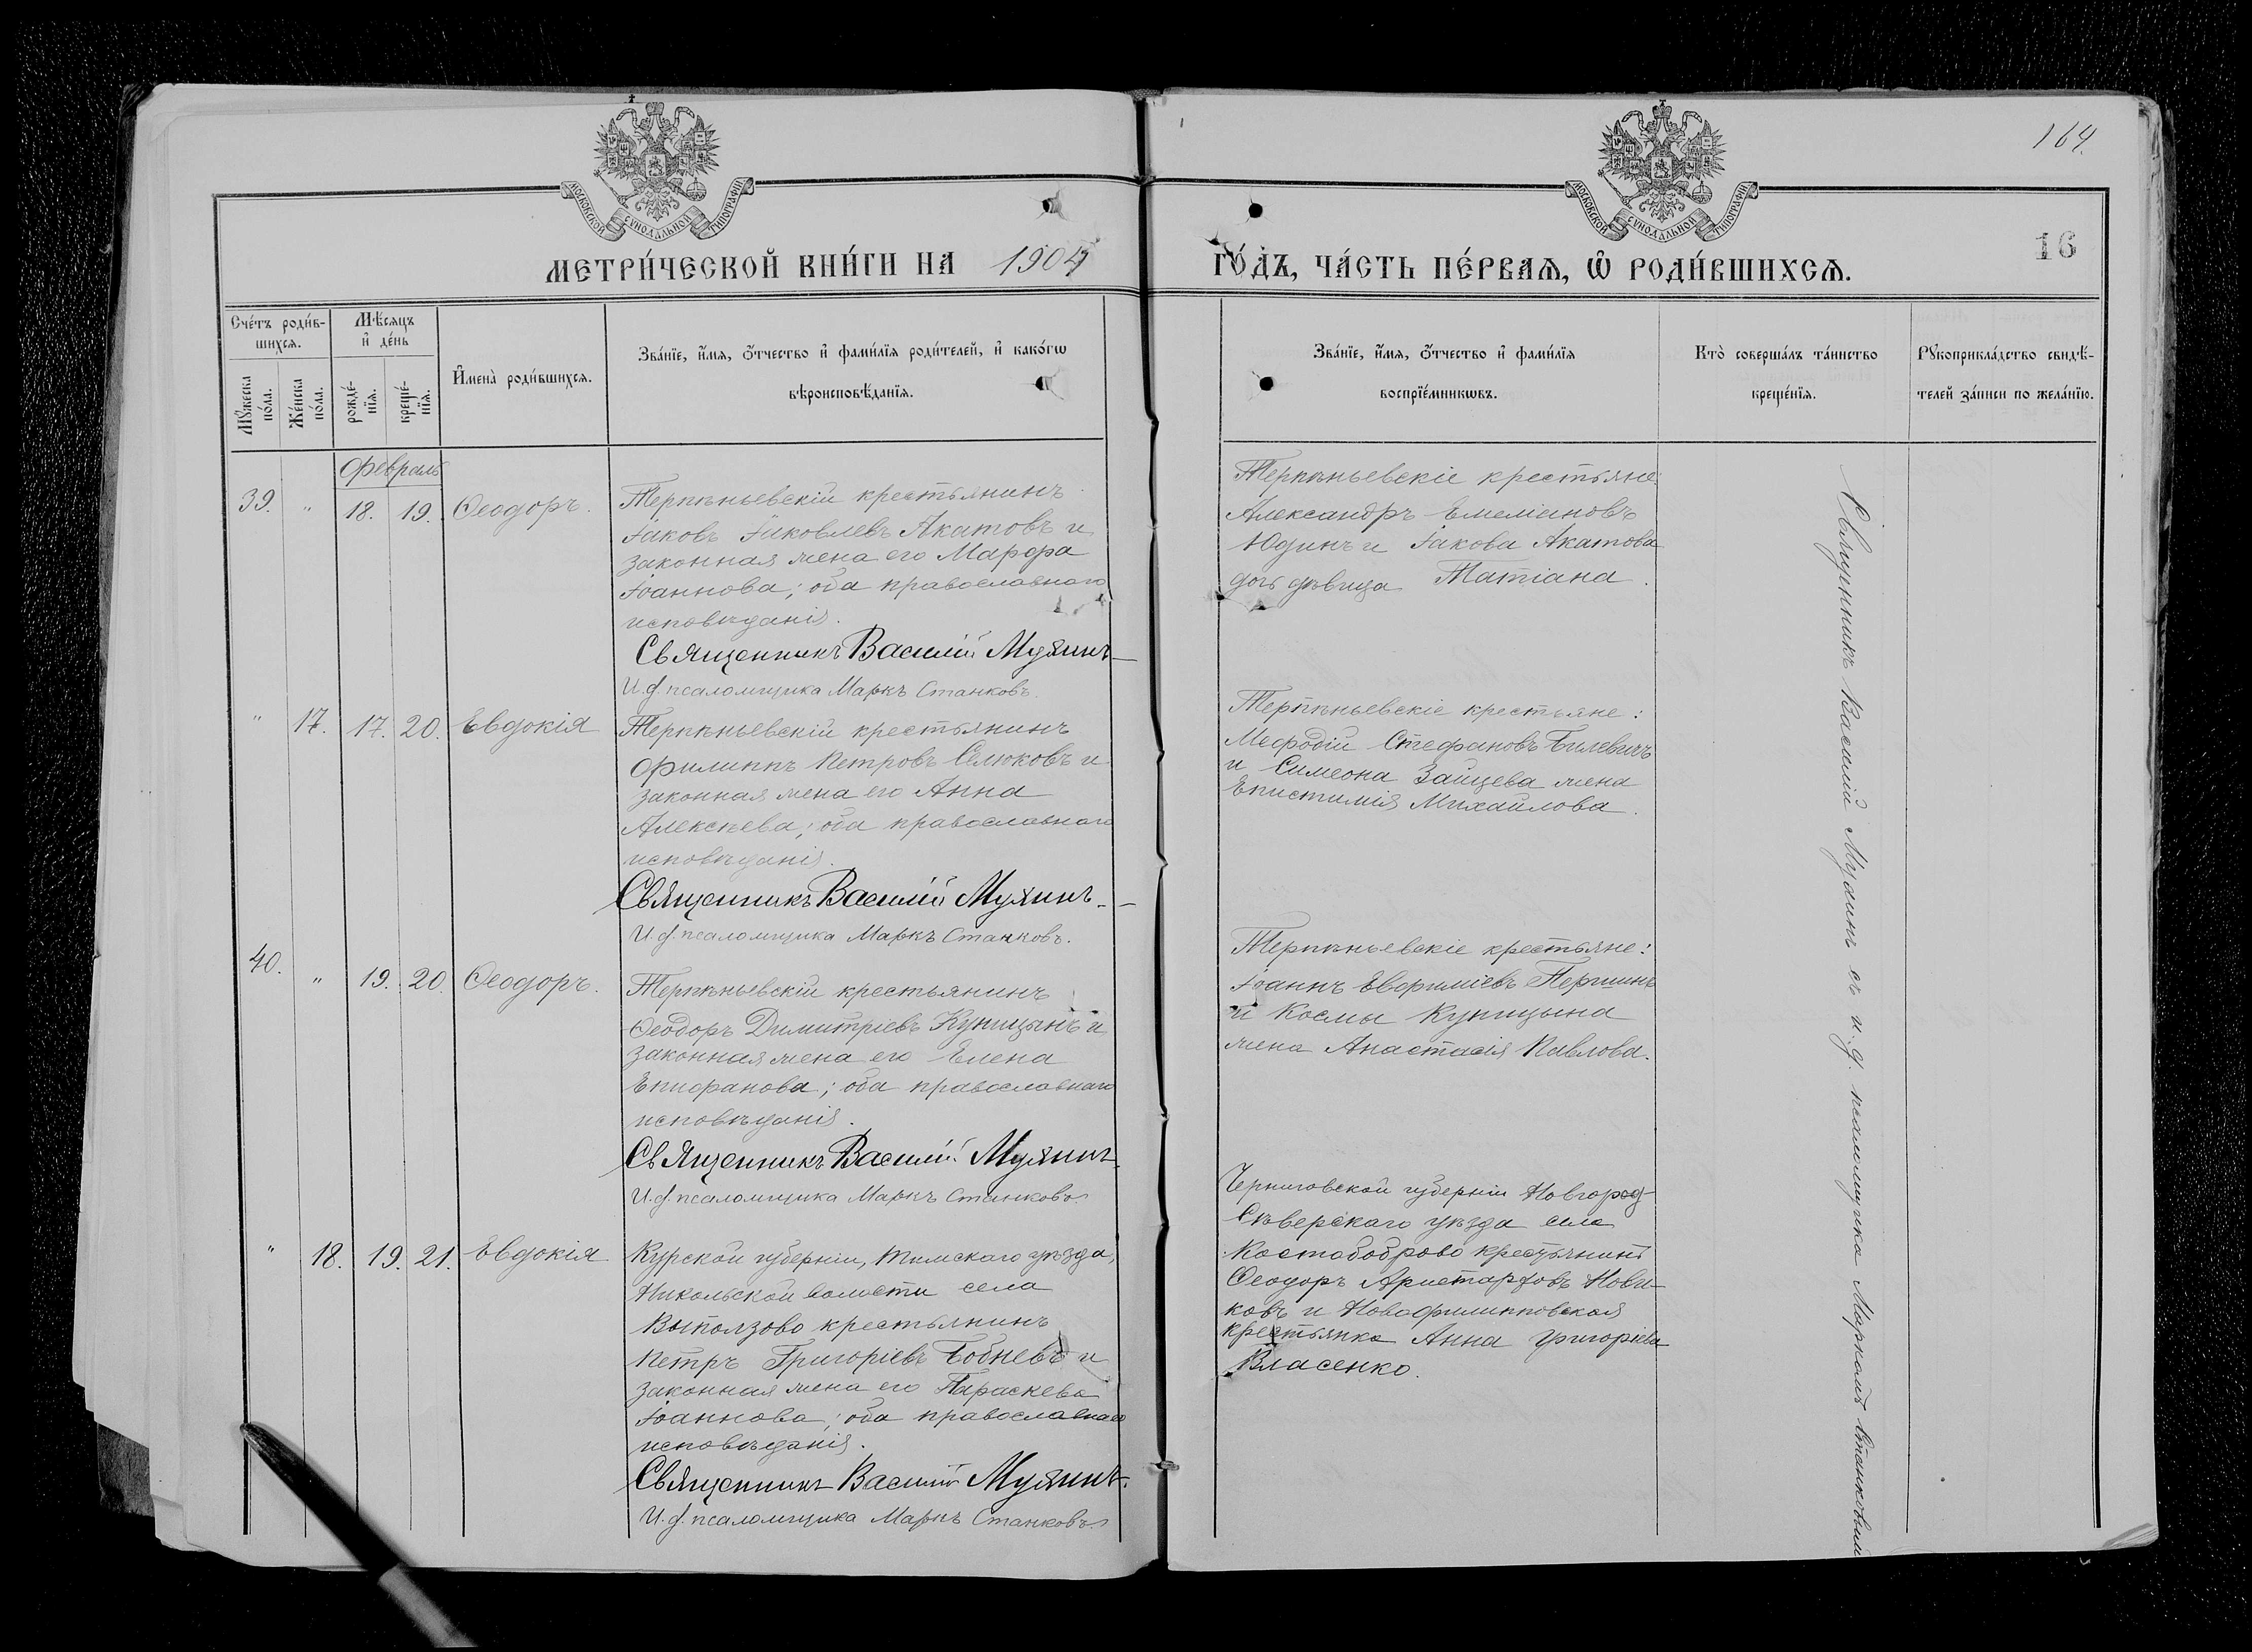 164.
16
МОСКОВСКОЙ СѴНОДАЛЬНОЙ ТИПОГРАФІИ
МОСКОВСКОЙ СѴНОДАЛЬНОЙ ТИПОГРАФІИ
МЕТРИ́ЧЕСКОЙ КНИ́ГИ НА 1904 ГО́ДЪ, ЧА́СТЬ ПЕ́РВАѦ, Ѽ РОДИ́ВШИХСѦ.
Сче́тъ роди́в-
шихсѧ.
Мꙋ́жеска по́ла.
Же́нска по́ла.
Мѣ́сѧцъ
и҆ де́нь
рожде́-
нїѧ.
креще́-
нїѧ.
И҆мена̀ роди́вшихсѧ.
Зва́нїе, и҆́мѧ, ѻ҆́тчество и҆ фами́лїѧ роди́телей, и҆ како́гѡ
вѣроисповѣ́данїѧ.
Зва́нїе, и҆́мѧ, ѻ҆́тчество и҆ фами́лїѧ
воспрїе́мникѡвъ.
Кто̀ соверша́лъ та́инство
креще́нїѧ.
Рꙋкоприкла́дство свидѣ́-
телей за́писи по жела́нїю.
Февраль
39. " 18. 19. Ѳеодоръ.
Терпѣньевскій крестьянинъ
Іаковъ Іаковлевъ Акатовъ и
законная жена его Марфа
Іоаннова; оба православнаго
исповѣданія.
Священникъ Василій Мухинъ
И. д. псаломщика Маркъ Станковъ.
Терпѣньевскіе крестьяне:
Александръ Емеліановъ
Юдинъ и Іакова Акатова
дочь дѣвица Татіана.
" 17. 17. 20. Евдокія
Терпѣньевскій крестьянинъ
Филиппъ Петровъ Селюковъ и
законная жена его Анна
Алексѣева; оба православнаго
исповѣданія.
Священникъ Василій Мухинъ
И. д. псаломщика Маркъ Станковъ.
Терпѣньевскіе крестьяне:
Меѳодій Стефановъ Билевичъ
и Симеона Зайцева жена
Епистимія Михайлова.
40. " 19. 20. Ѳеодоръ.
Терпѣньевскій крестьянинъ
Ѳеодоръ Димитріевъ Купицынъ и
законная жена его Елена
Епифанова; оба православнаго
исповѣданія.
Священникъ Василій Мухинъ
И. д. псаломщика Маркъ Станковъ
Терпѣньевскіе крестьяне:
Іоаннъ Евфиміевъ Першинъ
и Космы Купицына
жена Анастасія Павлова.
" 18. 19. 21. Евдокія
Курской губерніи, Тимскаго уѣзда,
Никольской волости села
Выползово крестьянинъ
Петръ Григоріевъ Бобневъ и
законная жена его Параскева
Іоаннова; оба православнаго
исповѣданія.
Священникъ Василій Мухинъ.
И. д. псаломщика Маркъ Станковъ
Черниговской губерніи Новгород-
Сѣверскаго уѣзда села
Костоброво крестьянинъ
Ѳеодоръ Аристарховъ Нови-
ковъ и Новофилипповская
крестьянка Анна Григоріева
Власенко.
Священникъ Василій Мухинъ съ и. д. псаломщика Маркомъ Станковымъ